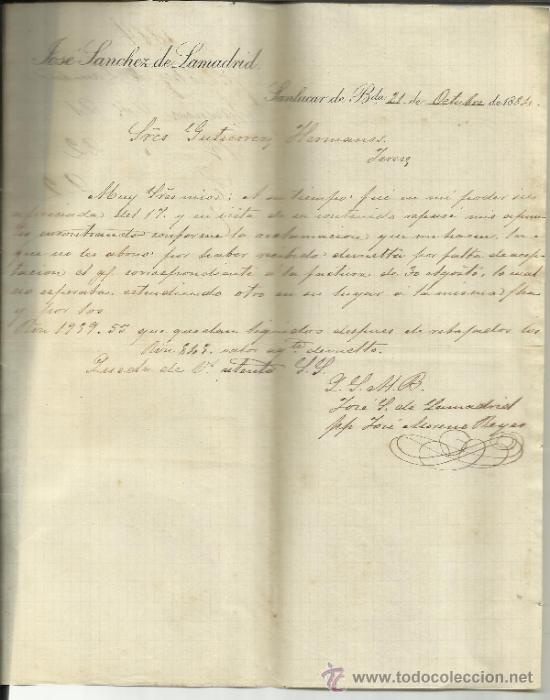 José Sanchez de Lamadrid
Sanlucar de Bda. 21 de Octubre de 188
Sres Gutierrez Hermanos.
Jerez
Muy Sres mios: A su tiempo fué en mi poder su
apreciada del 17. y en vista de su contenido repasé mis apun-
tes encontrando conforme la reclamacion que me hacen, la
que no les abono por haber recibido devuelta por falta de acep-
tacion el correspondiente á la factura de 30 agosto, la cual
no esperaba, estendiendo otro en su lugar á la misma fha
y por los
Rvn 1939.55 que quedan liquidos despues de rebajados los
Rvn 843. valor devuelto.
Queda de V. atento S.S.
Q. S. M. B.
José S. de Lamadrid
pp José Moreno Reyes
www.todocoleccion.net